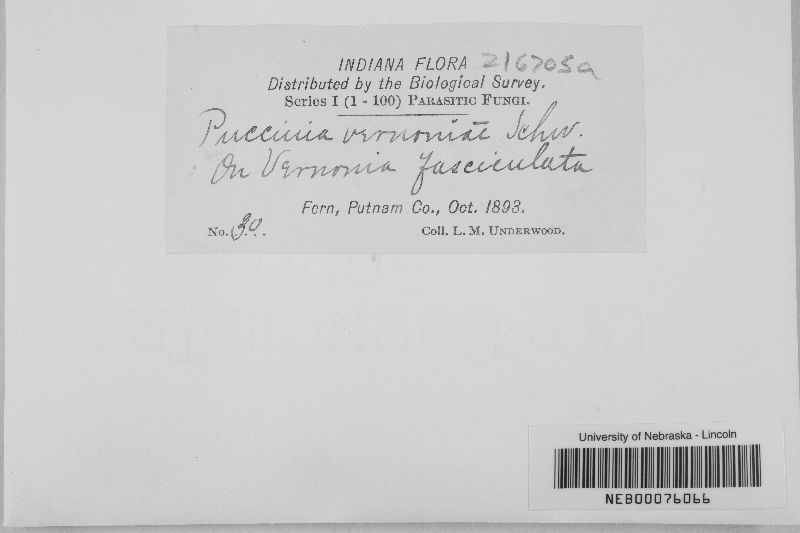 INDIANA FLORA 216705a
Distributed by the Biological Survey.
Series I (1 - 100) PARASITIC FUNGI.
Puccinia vernoniae Schw.
On Vernonia fasciculata
Fern, Putnam Co., Oct. 1893.
No. 30. Coll. L. M. UNDERWOOD.
University of Nebraska - Lincoln
NEB00076066